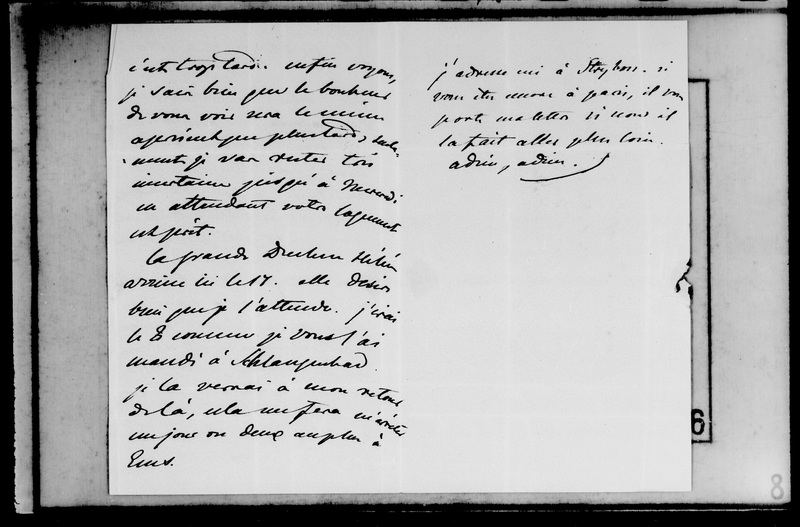 c'est trop tard. enfin voyons,
je sais bien que le bonheur
de vous voir sera le même
à présent que plus tard, seule-
ment je vais rester très
incertaine jusqu'à Mercredi
en attendant votre logement
est prêt.
la grande Duchesse Hélène
arrive ici le 17. elle désire
bien que je l'attende. j'irai
le comme je vous l'ai
mandé à Schlangenbad
je la verrai à mon retour
de là, cela me fera m'arrêter
un jour ou deux au plus à
Ems.
j'adresse ceci à si
vous êtes encore à paris, il vous
porte ma lettre si non il
la fait aller plus loin.
adieu, adieu.
6
8